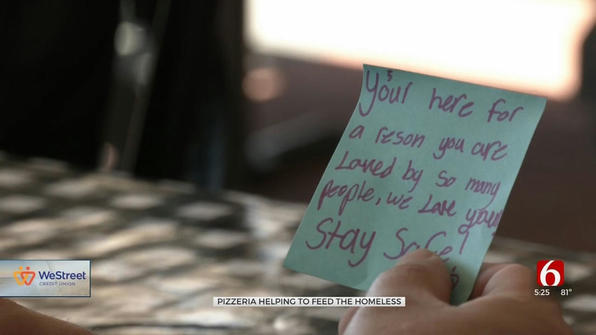 Your here for
a reson you are
Loved by so many
people, we Love you
Stay Safe!
WeStreet
CREDIT UNION
PIZZERIA HELPING TO FEED THE HOMELESS
6
5:25 81°